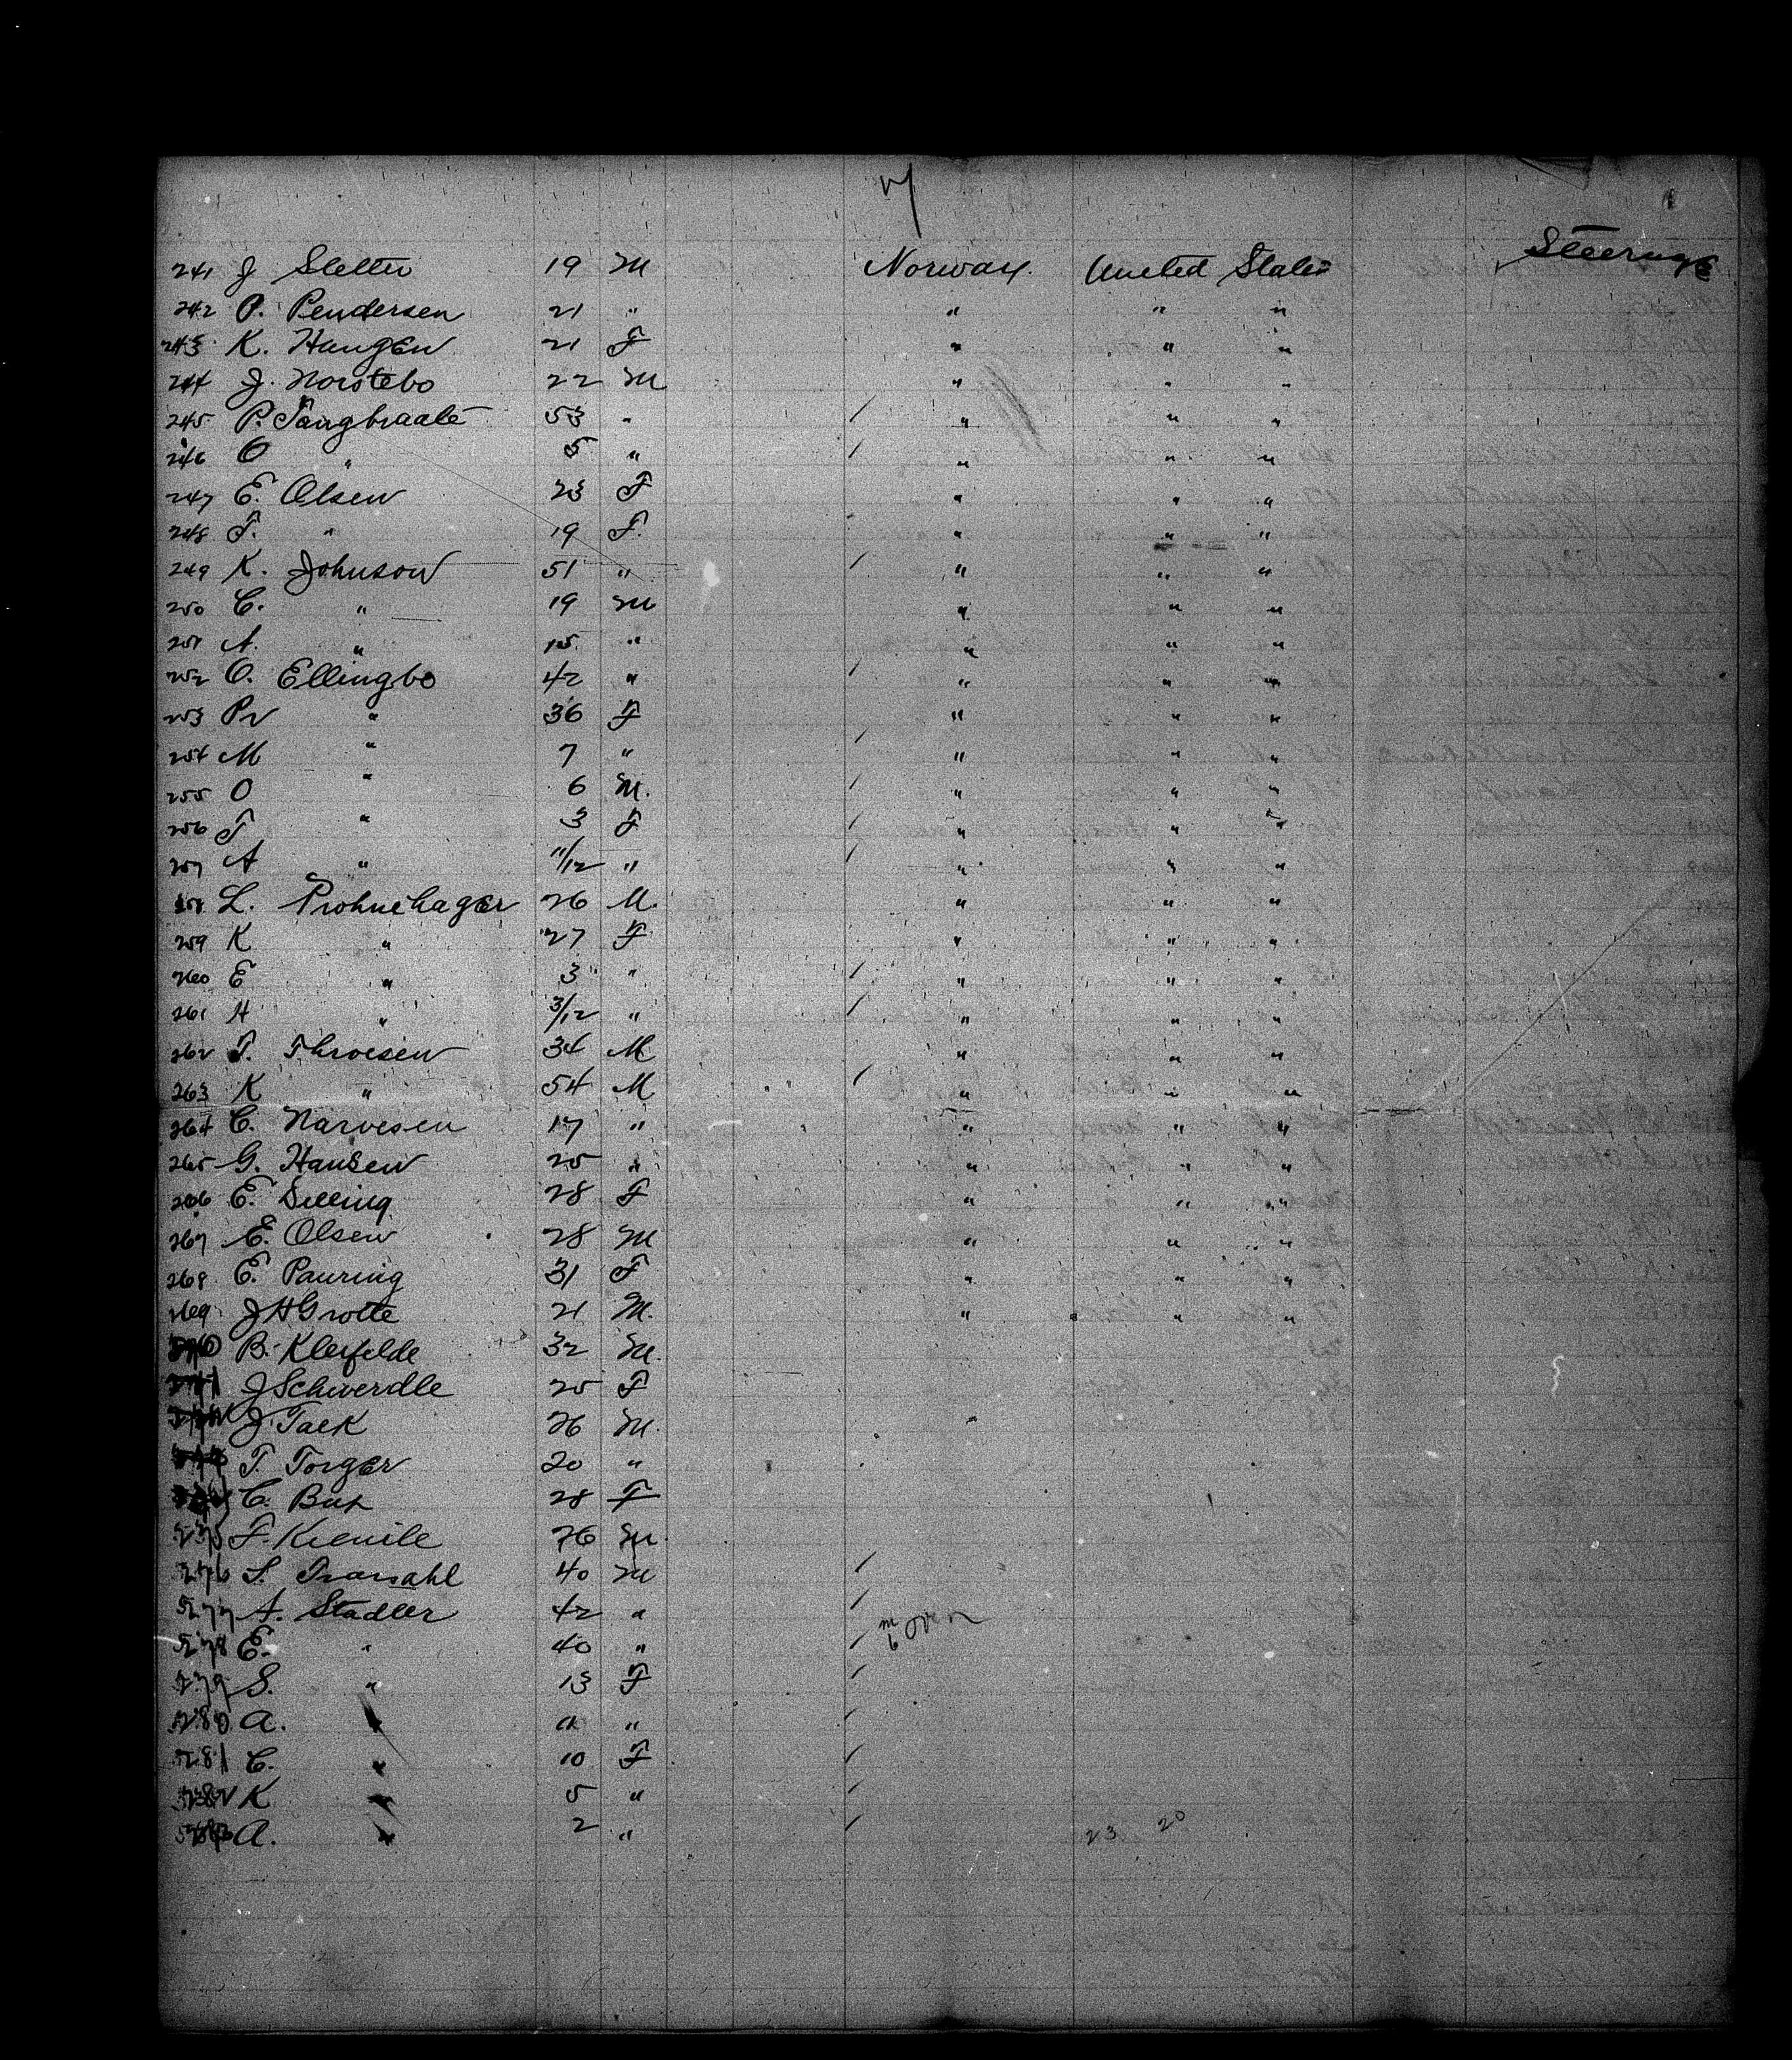 Steerage
241 J Sletter 19 M Norway. United States
242 P. Pendersen 21 " " " "
243 K. Haugen 21 F " " "
244 J. Norstebo 22 M " " "
245 P. Tangbraate 53 " " " "
246 O " 5 " " " "
247 E. Olsen 23 F " " "
248 T. " 19 F. " " "
249 K. Johnson 51 " " " "
250 C. " 19 M " " "
251 A. " 15. " " " "
252 O. Ellingbo 42 " " " "
253 Pr " 36 F " " "
254 M " 7 " " " "
255 O " 6 M. " " "
256 T " 3 F " " "
257 A " 11/12 " " " "
258 L. 26 M. " " "
259 K " 27 F " " "
260 E " 3 " " " "
261 H " 3/12 " " " "
262 T. Throesen 34 M " " "
263 K " 54 M " " "
264 C. Narvesen 17 " " " "
265 G. Hansen 25 " " " "
266 E. Selling 28 F " " "
267 E. Olsen 28 M " " "
268 E. Pauring 31 F " " "
269 J H Grotte 21 M. " " "
270 B. Kleifelde 32 M.
271 J Schwerdle 25 F
272 J. Taek 26 M.
273 T. Torger 20 "
274 C. 28 F
275 F. Kienile 26 M.
276 S. 40 M
277 A. Stadler 42 "
278 E. " 40 "
279 S. " 13 F
280 A. " 11 "
281 C. " 10 F
282 K " 5 "
283 A. " 2 "
23 20